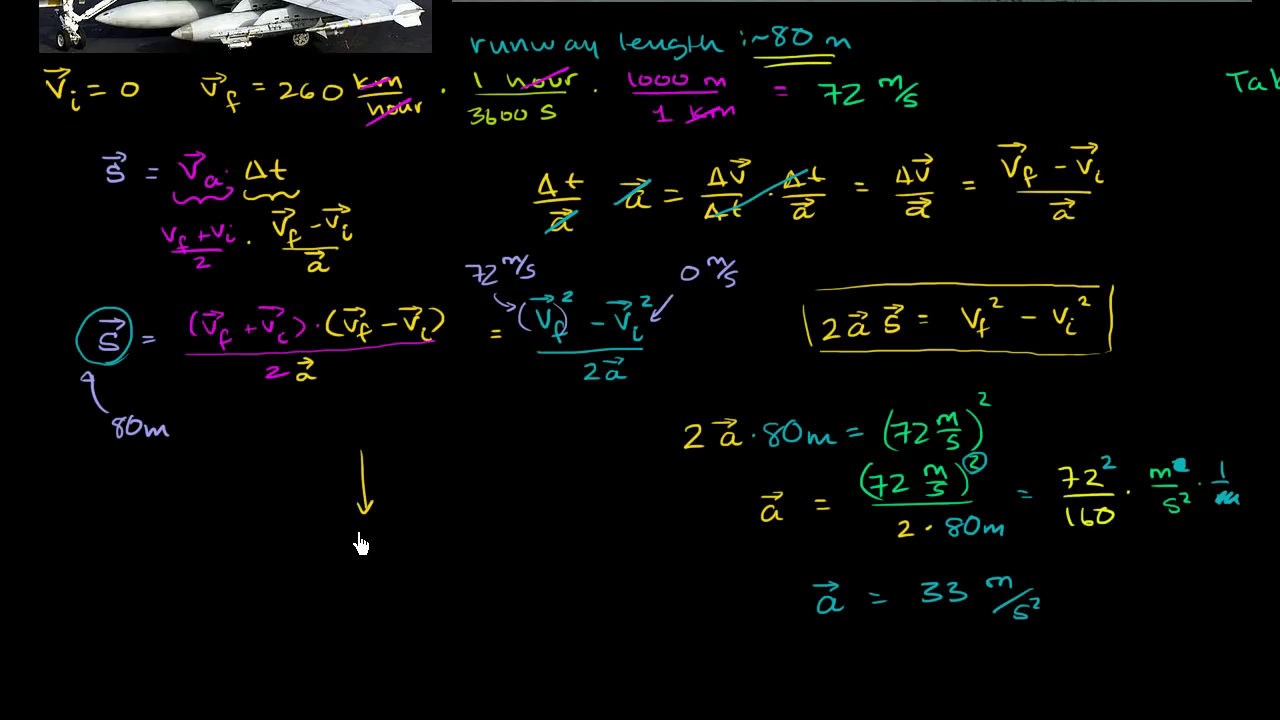 runway length : ~80 m
v⃗ᵢ = 0 v⃗_f = 260 km/hour · 1 hour/3600 s · 1000 m/1 km = 72 m/s
Tab
s⃗ = v⃗ₐ · Δt
(v_f + vᵢ)/2 · (v⃗_f − v⃗ᵢ)/a⃗
Δt/a⃗ a⃗ = Δv⃗/Δt · Δt/a⃗ = Δv⃗/a⃗ = (v⃗_f − v⃗ᵢ)/a⃗
72 m/s 0 m/s
s⃗ = (v⃗_f + v⃗ᵢ) · (v⃗_f − v⃗ᵢ)/2a⃗ = ((v⃗_f)² − v⃗ᵢ²)/2a⃗
2 a⃗ s⃗ = v_f² − vᵢ²
80m
2 a⃗ · 80m = (72 m/s)²
a⃗ = (72 m/s)²/(2 · 80m) = 72²/160 · m²/s² · 1/m
a⃗ = 33 m/s²